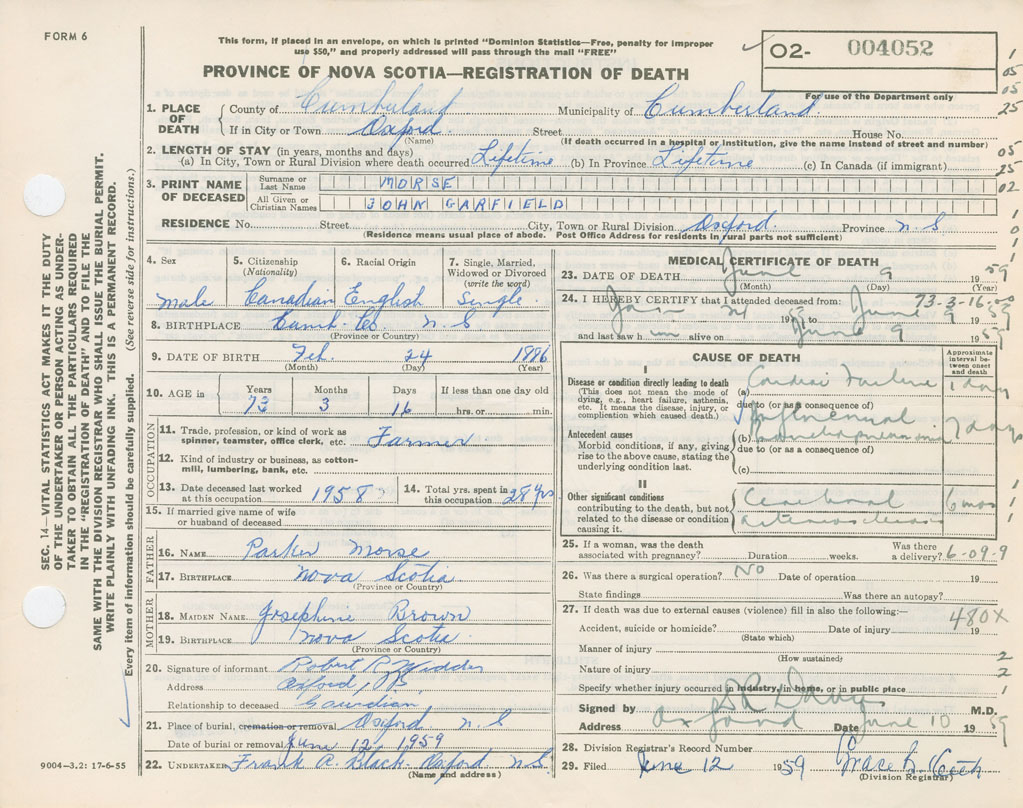 FORM 6
This form, if placed in an envelope, on which is printed "Dominion Statistics—Free, penalty for improper
use $50," and properly addressed will pass through the mail "FREE"
PROVINCE OF NOVA SCOTIA—REGISTRATION OF DEATH
02- 004052
For use of the Department only
1. PLACE OF DEATH County of Cumberland Municipality of Cumberland
If in City or Town Oxford Street House No.
(Name) (If death occurred in a hospital or institution, give the name instead of street and number)
2. LENGTH OF STAY (in years, months and days)
(a) In City, Town or Rural Division where death occurred Lifetime (b) In Province Lifetime (c) In Canada (if immigrant)
3. PRINT NAME OF DECEASED Surname or Last Name MORSE
All Given or Christian Names JOHN GARFIELD
RESIDENCE No. Street City, Town or Rural Division Oxford Province N.S
(Residence means usual place of abode. Post Office Address for residents in rural parts not sufficient)
1
05
05
25
05
25
02
1
0
1
4. Sex
male
5. Citizenship
(Nationality)
Canadian
6. Racial Origin
English
7. Single, Married,
Widowed or Divorced
(write the word)
Single
8. BIRTHPLACE Cumb. Co. N.S
(Province or Country)
9. DATE OF BIRTH Feb. 24 1886
(Month) (Day) (Year)
10. AGE in Years Months Days If less than one day old
73 3 16 hrs. or min.
OCCUPATION
11. Trade, profession, or kind of work as
spinner, teamster, office clerk, etc. Farmer
12. Kind of industry or business, as cotton-
mill, lumbering, bank, etc.
13. Date deceased last worked
at this occupation 1958
14. Total yrs. spent in
this occupation 28 yrs
15. If married give name of wife
or husband of deceased
FATHER
16. NAME Parker Morse
17. BIRTHPLACE Nova Scotia
(Province or Country)
MOTHER
18. MAIDEN NAME Josephine Brown
19. BIRTHPLACE Nova Scotia
(Province or Country)
20. Signature of informant Robert R
Address Oxford, N.S.
Relationship to deceased Gaurdian
21. Place of burial, cremation or removal Oxford N.S
Date of burial or removal June 12, 1959
22. UNDERTAKER Frank A. Black Oxford N.S.
(Name and address)
MEDICAL CERTIFICATE OF DEATH
23. DATE OF DEATH June 9 1959
(Month) (Day) (Year)
73-3-16-00
24. I HEREBY CERTIFY that I attended deceased from:
Jan 19 to June 9 1959
and last saw him alive on June 9 1959
CAUSE OF DEATH
Approximate
interval be-
tween onset
and death
I
Disease or condition directly leading to death
(This does not mean the mode of
dying, e.g., heart failure, asthenia,
etc. It means the disease, injury, or
complication which caused death.)
(a) Cardiac Failure 1 day
due to (or as a consequence of)
Antecedent causes
Morbid conditions, if any, giving
rise to the above cause, stating the
underlying condition last.
Influenzal
(b) bronchopneumonia 7 days
due to (or as a consequence of)
(c)
II
Other significant conditions
contributing to the death, but not
related to the disease or condition
causing it.
Cerebral 6 mos
Arteriosclerosis
25. If a woman, was the death
associated with pregnancy? Duration weeks. Was there
a delivery? 6-09-9
26. Was there a surgical operation? No Date of operation 19
State findings Was there an autopsy?
27. If death was due to external causes (violence) fill in also the following:—
480X
Accident, suicide or homicide? Date of injury 19
(State which)
Manner of injury
(How sustained)
2
Nature of injury
2
Specify whether injury occurred in industry, in home, or in public place
1
Signed by M.D.
Address Oxford Date June 10 1959
28. Division Registrar's Record Number
29. Filed June 12 1959 Grace
(Division Registrar)
SEC. 14—VITAL STATISTICS ACT MAKES IT THE DUTY
OF THE UNDERTAKER OR PERSON ACTING AS UNDER-
TAKER TO OBTAIN ALL THE PARTICULARS REQUIRED
IN THE "REGISTRATION OF DEATH" AND TO FILE THE
SAME WITH THE DIVISION REGISTRAR WHO SHALL ISSUE THE BURIAL PERMIT.
WRITE PLAINLY WITH UNFADING INK. THIS IS A PERMANENT RECORD.
Every item of information should be carefully supplied. (See reverse side for instructions.)
9004-3.2: 17-6-55